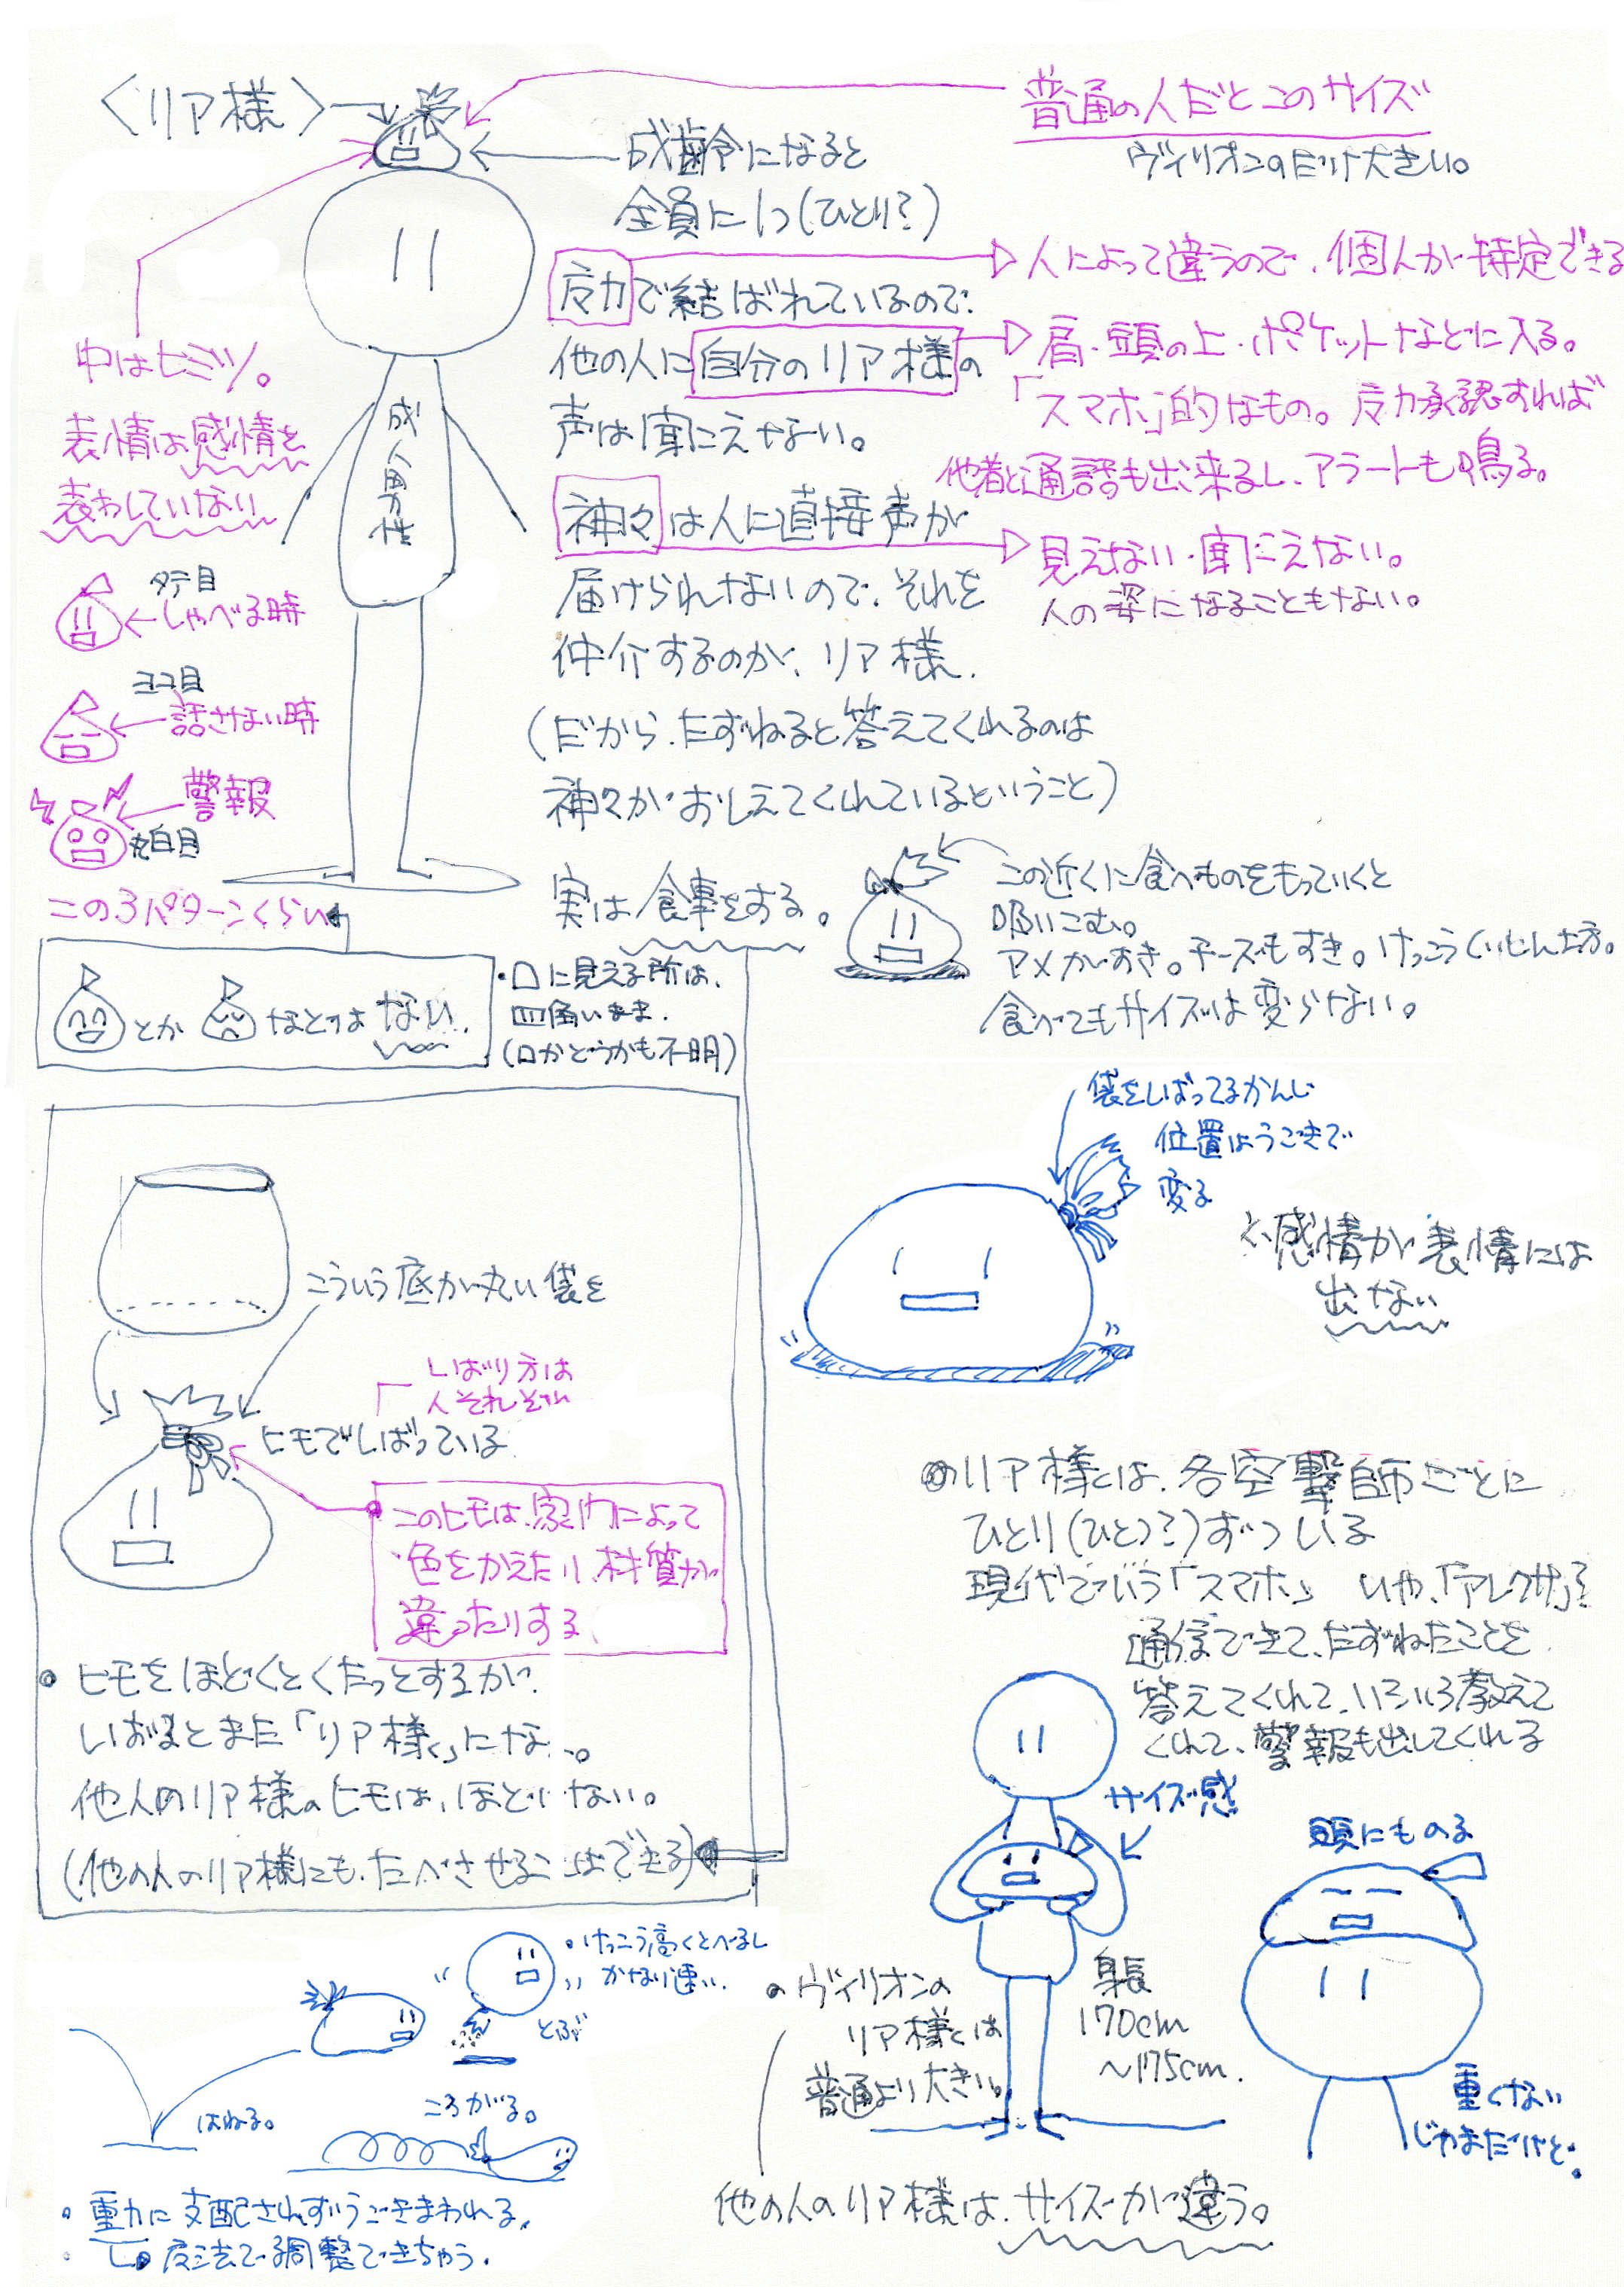 〈リア様〉
普通の人だとこのサイズ
ヴィリオンのだけ大きい。
成齢になると
全員に1つ(ひとり?)
反力で結ばれているので、
他の人に自分のリア様の
声は聞こえない。
人によって違うので、個人が特定できる
肩・頭の上・ポケットなどに入る。
「スマホ」的なもの。反力承認すれば
他者と通話も出来るし、アラートも鳴る。
神々は人に直接声が
届けられないので、それを
仲介するのが、リア様、
(だから、たずねると答えてくれるのは
神々がおしえてくれているということ)
見えない・聞こえない。
人の姿になることもない。
成人男性
中はヒミツ。
表情は感情を
表わしていない
タテ目
しゃべる時
ヨコ目
話さない時
警報
丸白目
この3パターンくらい
とか
などはない、
・口に見える所は、
四角いまま。
(口かどうかも不明)
実は食事をする。
この近くに食べものをもっていくと
吸いこむ。
アメがすき。チーズもすき。けっこうくいしん坊。
食べてもサイズは変らない。
袋をしばってるかんじ
位置はうごきで
変る
感情が表情には
出ない
こういう底が丸い袋を
しばり方は
人それぞれ
ヒモでしばっている
このヒモは、家門によって
色をかえたり、材質が
違ったりする
・ヒモをほどくとくたっとするが、
しばるとまた「リア様」にな
他人のリア様のヒモは、ほどけない。
(他の人のリア様にも、たべさせることはできる)
◎リア様は、各空撃師ごとに
ひとり(ひとつ?)ずついる
現代でいう「スマホ」 いや、「アレクサ」?
通信できて、たずねたことを
答えてくれて、いろいろ教えて
くれて、警報も出してくれる
サイズ感
頭にものる
・ヴィリオンの
リア様は
普通より大きい。
身長
170cm
〜175cm.
重くない
じゃまだけど。
他の人のリア様は、サイズが違う。
・けっこう高くとべるし
かなり速い。
とぶ
はねる。
ころがる。
・重力に支配されずうごきまわれる。
・反法で調整できちゃう。